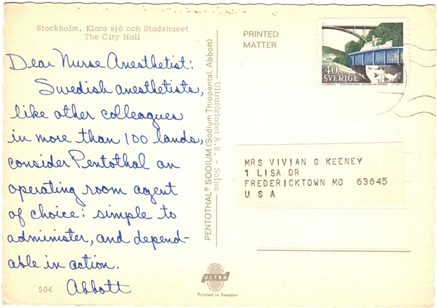 Stockholm, Klara sjö och Stadshuset
The City Hall
Dear Nurse Anesthetist:
Swedish anesthetists,
like other colleagues
in more than 100 lands,
consider Pentothal an
operating room agent
of choice: simple to
administer, and depend-
able in action.
Abbott
504
PENTOTHAL® SODIUM (Sodium Thiopental, Abbott)
Ultraförlaget A.B. - Solna
ULTRA
Printed in Sweden
PRINTED
MATTER
40
SVERIGE
MRS VIVIAN G KEENEY
1 LISA DR
FREDERICKTOWN MO 63645
U S A